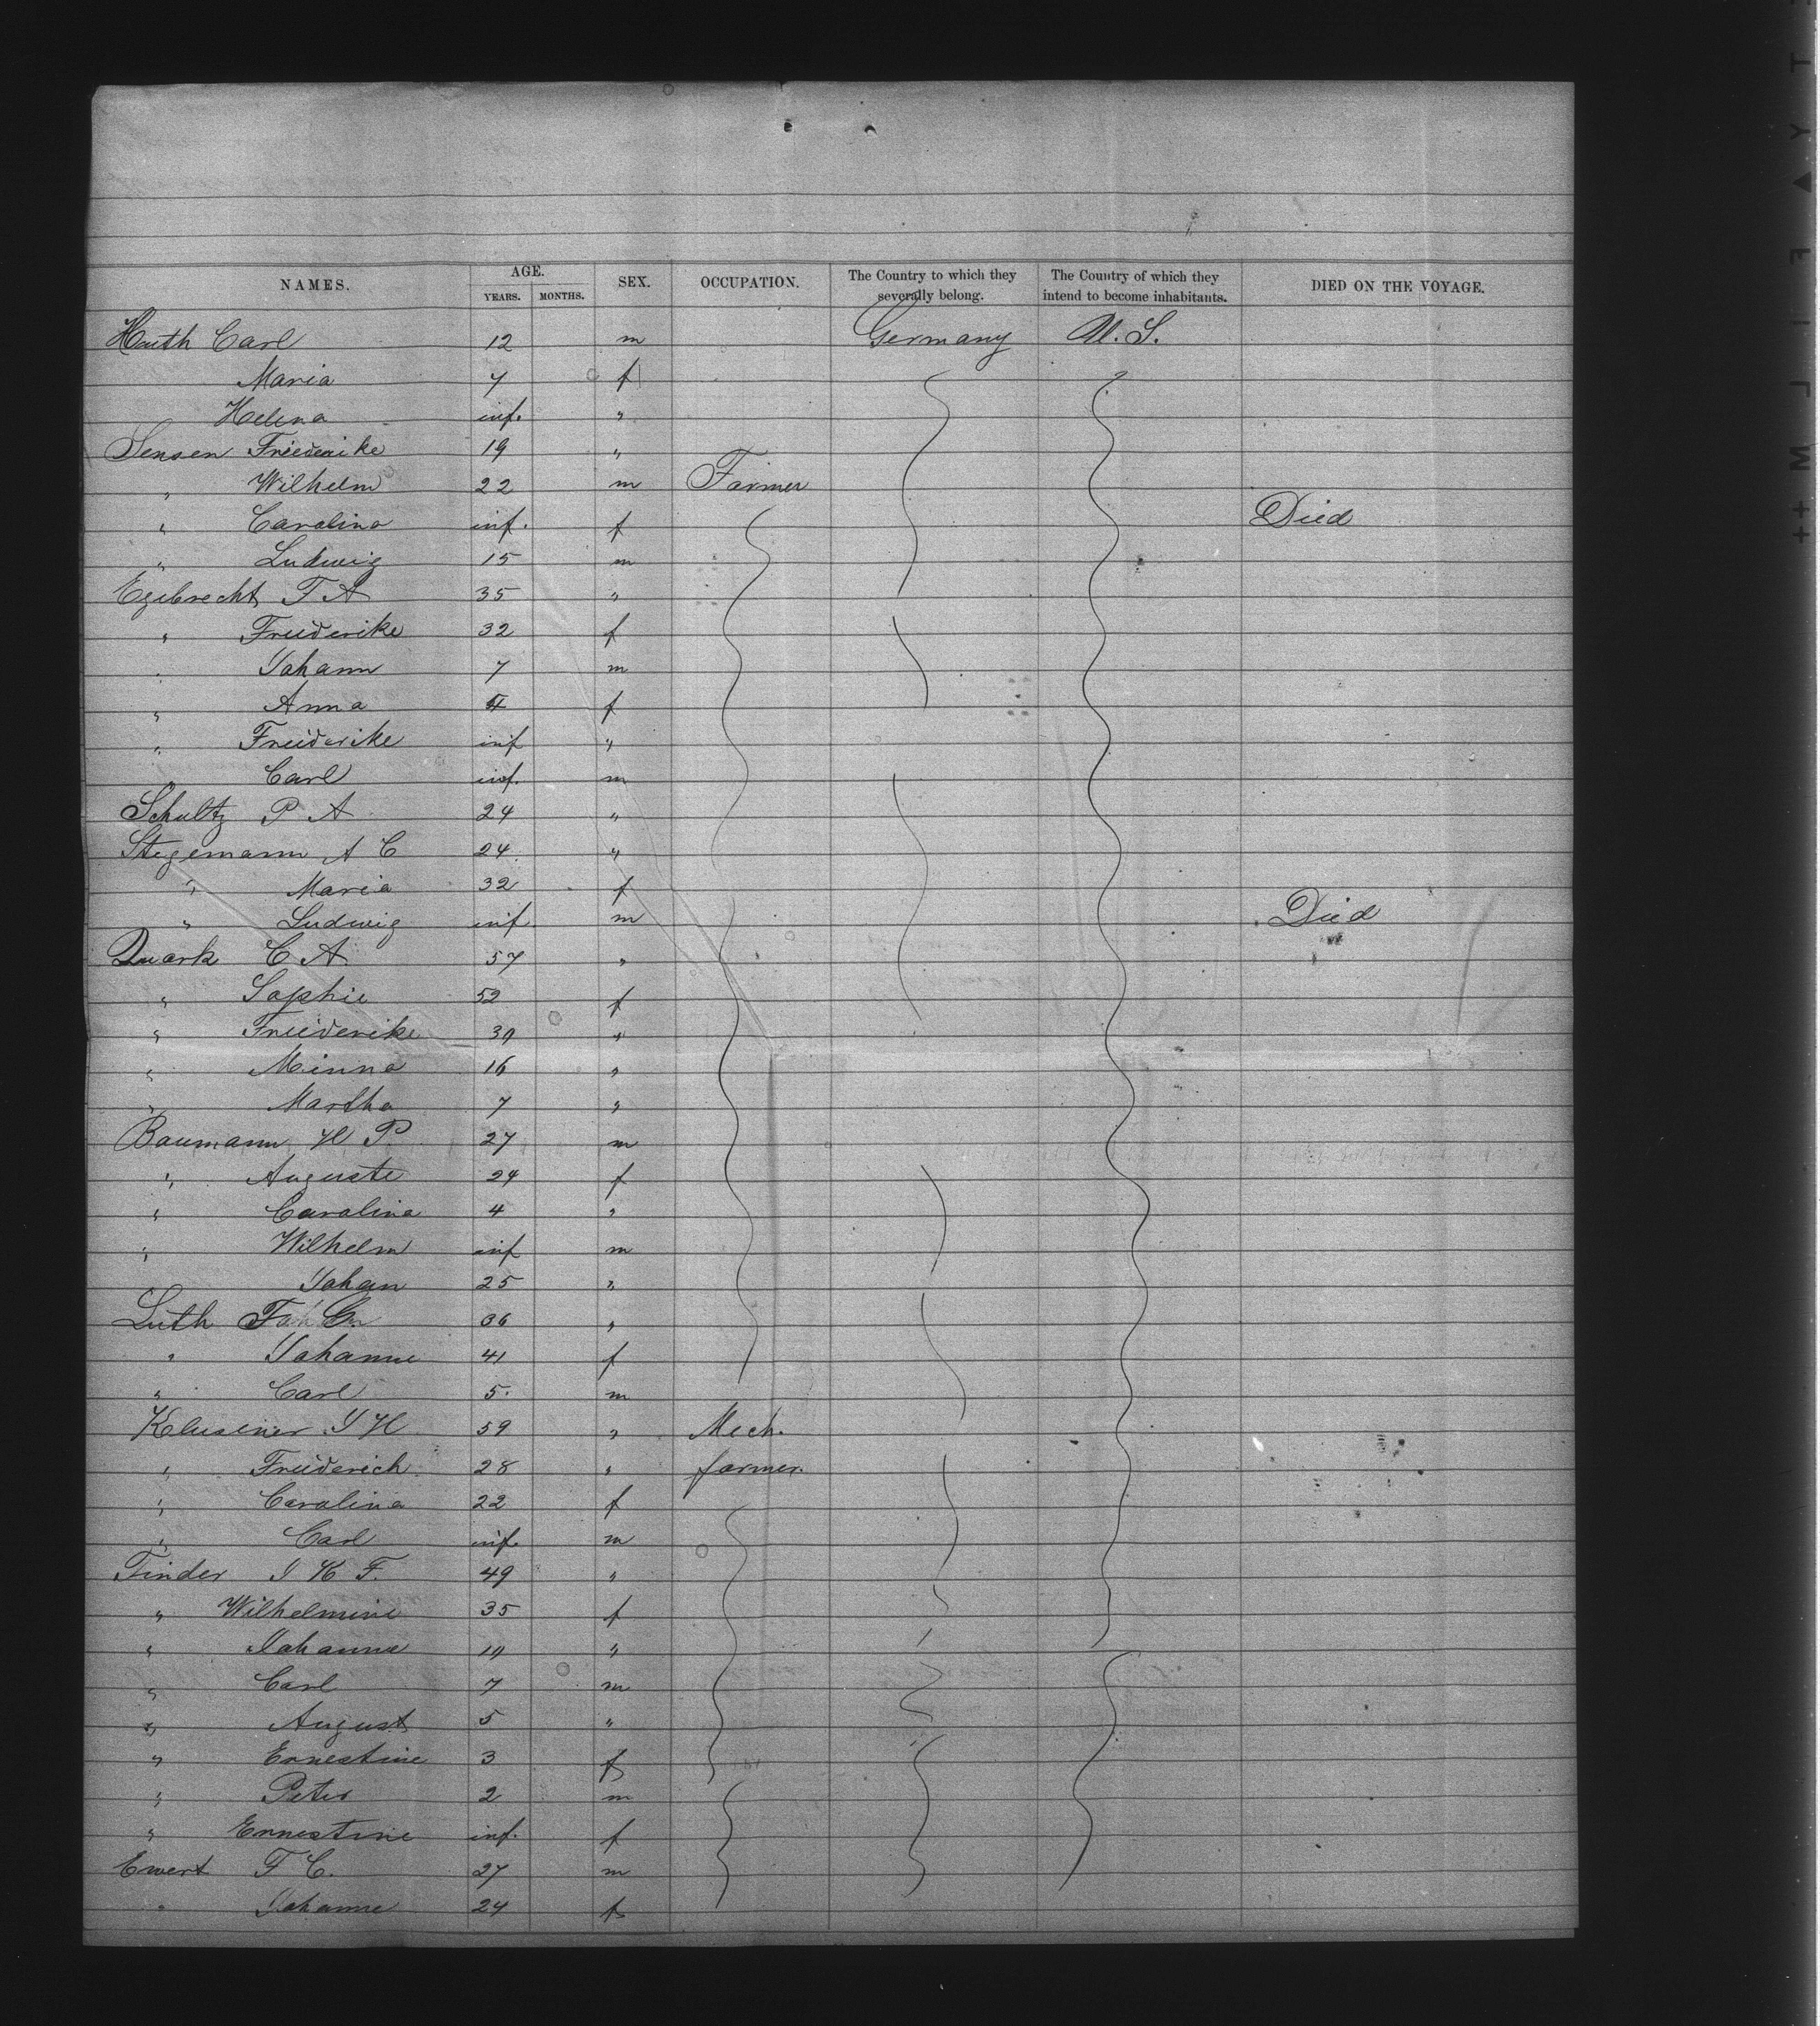 NAMES. AGE. SEX. OCCUPATION. The Country to which they severally belong. The Country of which they intend to become inhabitants. DIED ON THE VOYAGE.
YEARS. MONTHS.
Huth Carl 12 m Germany U. S.
Maria 7 f
Helena inf. "
Jensen Friederike 19 "
" Wilhelm 22 m Farmer
" Carolina inf. f Died
" Ludwig 15 m
Egebrecht F A 35 "
" Friederike 32 f
" Johann 7 m
" Anna 4 f
" Friederike inf "
" Carl inf. m
Schultz P A 24 "
Stegemann A C 24 "
" Maria 32 f
" Ludwig inf. m Died
Quark C A 57 "
" Sophie 52 f
" Friederike 30 "
" Minna 16 "
" Martha 7 "
Baumann H P 27 m
" Auguste 24 f
" Carolina 4 "
" Wilhelm inf m
Johan 25 "
Luth 36 "
" Johanne 41 f
" Carl 5. m
Klusener J H 59 " Mech.
" Friederich 28 " farmer.
" Carolina 22 f
" Carl inf. m
Tinder J K F. 49 "
" Wilhelmine 35 f
" Johanna 10 "
" Carl 7 m
" August 5 "
" Ernestine 3 f
" Peter 2 m
" Ernestine inf. f
Ewert F C. 27 m
" Johanne 24 f